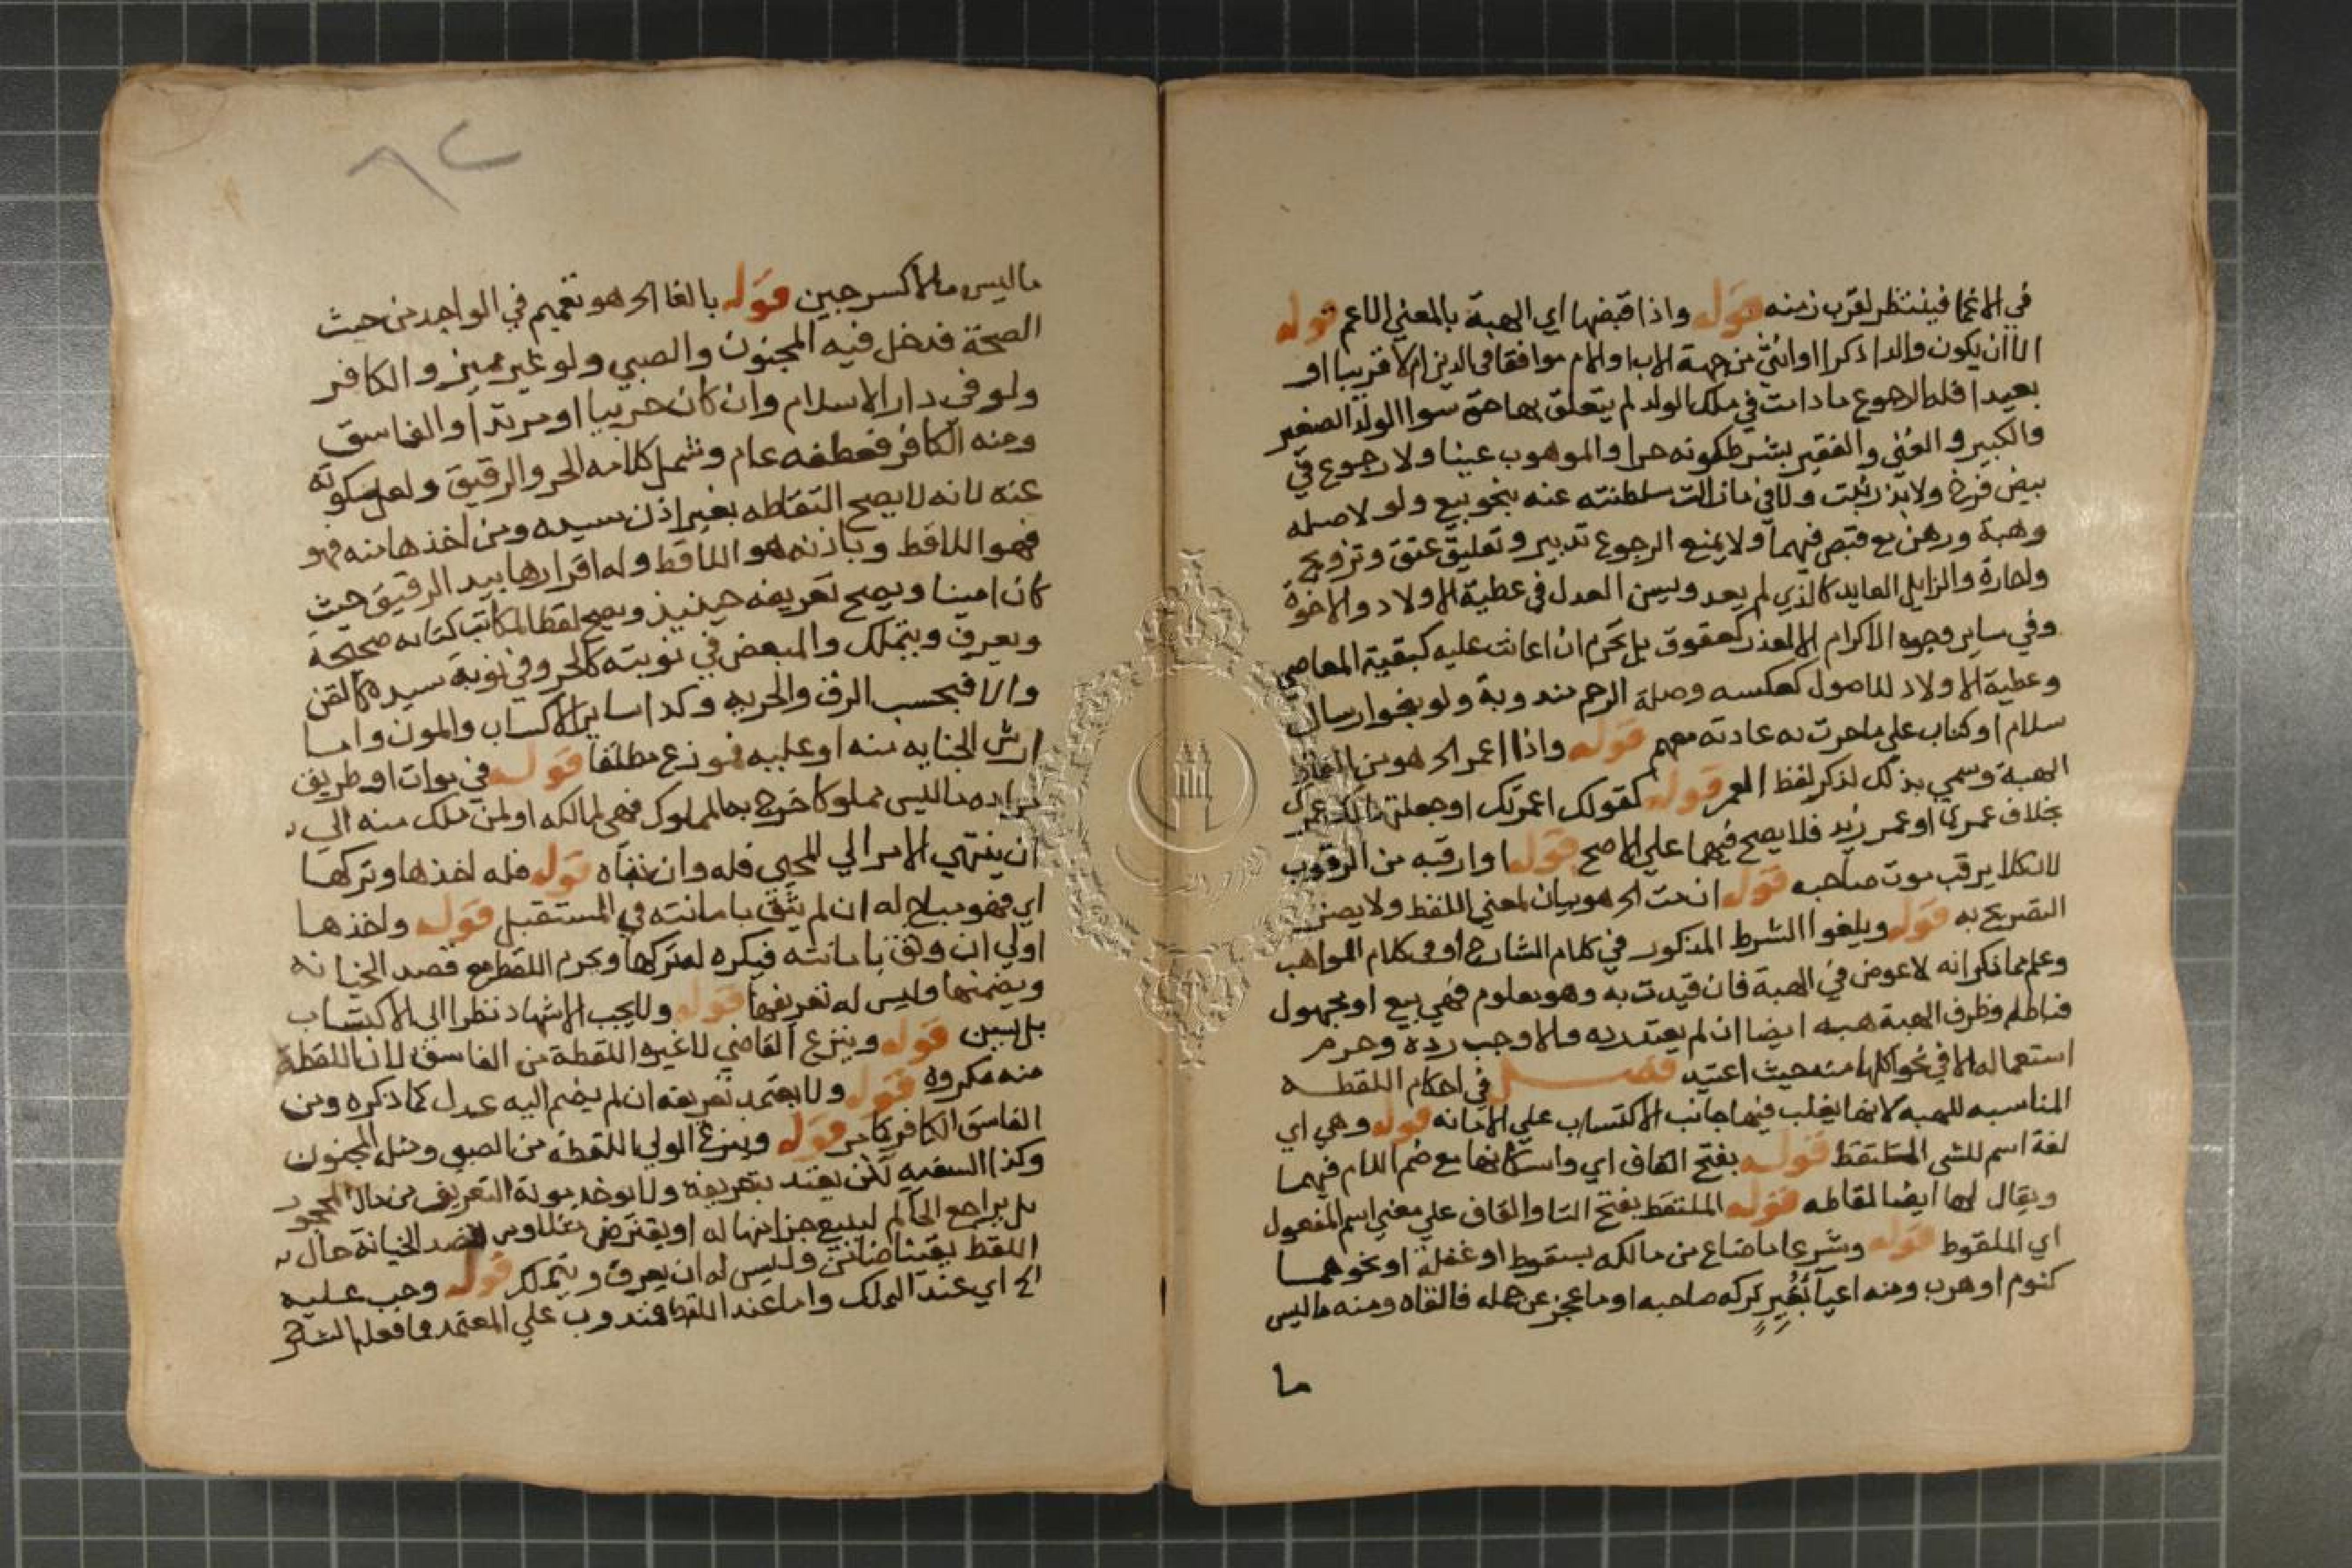 في الاغما فينتظر لقرب زمنه قوله واذا قبضها اي الهبة بالمعني الاعم قوله
الا ان يكون والدا ذكرا او انثي من جهة الاب او الام موافقا في الدين ام لا قريبا او
بعيدا فله الرجوع ما دامت في ملك الولد لم يتعلق بها حق سوا الولد الصغير
والكبير والغني والفقير بشرط كونه حرا والموهوب عينا ولا رجوع في
بيض فرخ ولا بذر نبت ولا في ما زالت سلطنته عنه بنحو بيع ولو لاصله
وهبة ورهن مع قبض فيهما ولا يمنع الرجوع تدبير وتعليق عتق وتزويج
واجارة والزايل العايد كالذي لم يعد ويسن العدل في عطية الاولاد والاخوة
وفي ساير وجوه الاكرام الا لعذر كعقوق بل تحرم ان اعانت عليه كبقية المعاصي
وعطية الاولاد للاصول كعكسه وصلة الرحم مندوبة ولو بنحو ارسال
سلام او كتاب علي ما جرت به عادته معهم قوله واذا اعمر الخ هو من
الهبة وسمي بذلك لذكر لفظ العمر قوله كقولك اعمرتك او جعلتها لك عمرك
بخلاف عمري او عمر زيد فلا يصح فيهما علي الاصح قوله او ارقبه من الرقوب
لان كلا يرقب موت صاحبه قوله ان مت الخ هو بيان لمعني اللفظ ولا يضر
التصريح به قوله ويلغوا الشرط المذكور في كلام الشارح او في كلام الواهب
وعلم مما ذكر انه لا عوض في الهبة فان قيدت به وهو معلوم فهي بيع او مجهول
فباطلة وظرف الهبة هبه ايضا ان لم يعتد رده والا وجب رده وحرم
استعماله الا في نحو اكلها منه حيث اعتيد فصل في احكام اللقطه
المناسبه للهبه لانها يغلب فيها جانب الاكتساب علي الامانه قوله وهي اي
لغة اسم للشي الملتقط قوله بفتح القاف اي واسكانها مع ضم اللام فيهما
ويقال لها ايضا لقاطه قوله الملتقط بفتح التا والقاف علي معني اسم المفعول
اي الملقوط قوله وشرعا ما ضاع من مالكه بسقوط او غفلة او نحوهما
كنوم او هرب ومنه اعيا بعير تركه صاحبه او ما عجز عن حمله فالقاه ومنه ما ليس
ما
٨٢
ما ليس مالا كسرجين قوله بالغا الخ هو تعميم في الواجد من حيث
الصحة فدخل فيه المجنون والصبي ولو غير مميز والكافر
ولو في دار الاسلام وان كان حربيا او مرتدا والفاسق
ومنه الكافر فعطفه عام وشمل كلامه الحر والرقيق ولعل سكوته
عنه لانه لا يصح التقاطه بغير اذن سيده ومن اخذها منه فهو
فهو اللاقط وباذنه هو اللاقط وله اقرارها بيد الرقيق حيث
كان امينا ويصح تعريفه حينيذ ويصح لقط المكاتب كتابه صحيحة
ويعرف ويتملك والمبعض في نوبته كالحر وفي نوبة سيده كالقن
والا فبحسب الرق والحريه وكذا ساير الاكساب والمون واما
ارش الجنايه منه او عليه فيوزع مطلقا قوله في موات او طريق
مراده ما ليس مملوكا خرج به المملوك فهي لمالكه او لمن ملك منه الي
ان ينتهي الامر الي المحيي فله وان نفاه قوله فله اخذها وتركها
اي فهو مباح له ان لم يثق بامانته في المستقبل قوله واخذها
اولي ان وثق بامانته فيكره له تركها ويحرم اللقط مع قصد الخيانه
ويضمنها وليس له تعريفها قوله ولا يجب الاشهاد نظرا الي الاكتساب
بل يسن قوله وينزع القاضي لا غيره اللقطة من الفاسق لان اللقطة
منه مكروه قوله ولا يعتمد تعريفه ان لم يضم اليه عدل كما ذكره ومن
الفاسق الكافر كما مر قوله وينزع الولي اللقطة من الصبي ومثل المجنون
وكذا السفيه لكن يعتد بتعريفه ولا يوخذ مونة التعريف من مال
بل يراجع الحاكم ليبيع جزا منها له او يقترض قصد الخيانة حال
اللقط وليس له ان يعرف ويتملك قوله وجب عليه
الخ اي عند التملك واما عند اللقط فمندوب علي المعتمد وما فعله الشارح